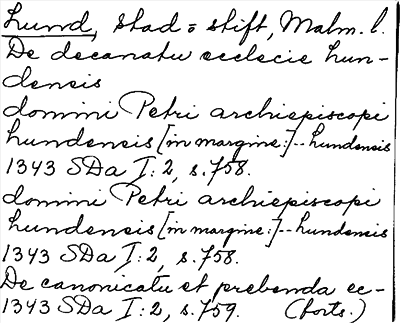 Lund, stad o stift, Malm. l.
De decanatu ecclecie Lun-
densis
domini Petri archiepiscopi
Lundensis [in margine:]-- Lundensis
1343 SDa I:2, s.758.
domini Petri archiepiscopi
Lundensis [in margine:]-- Lundensis
1343 SDa I:2, s.758.
De canonicatu et prebenda ec-
1343 SDa I:2, s.759. (forts.)